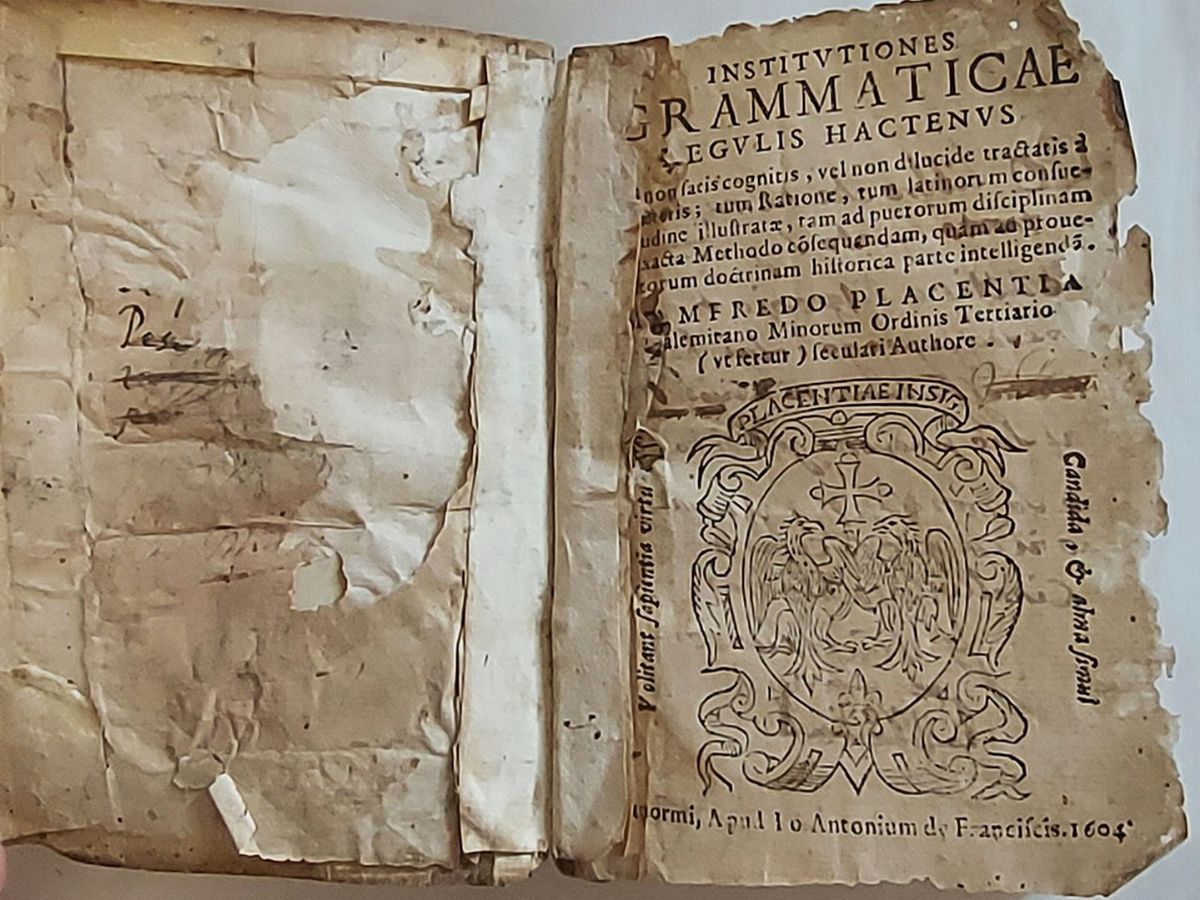 INSTITVTIONES
GRAMMATICAE
EGVLIS HACTENVS
non satis cognitis, vel non dilucide tractatis à
; tum Ratione, tum latinorum consue-
udine illustratæ, tam ad puerorum disciplinam
acta Methodo cōsequendam, quàm ad proue-
torum doctrinam historica parte intelligendā.
MFREDO PLACENTIA
alemitano Minorum Ordinis Tertiario
(vt fertur) seculari Authore.
PLACENTIAE INSIG.
Volitant sapientia virtus
Candida, & alma simul
normi, Apud Io Antonium de Franciscis. 1604